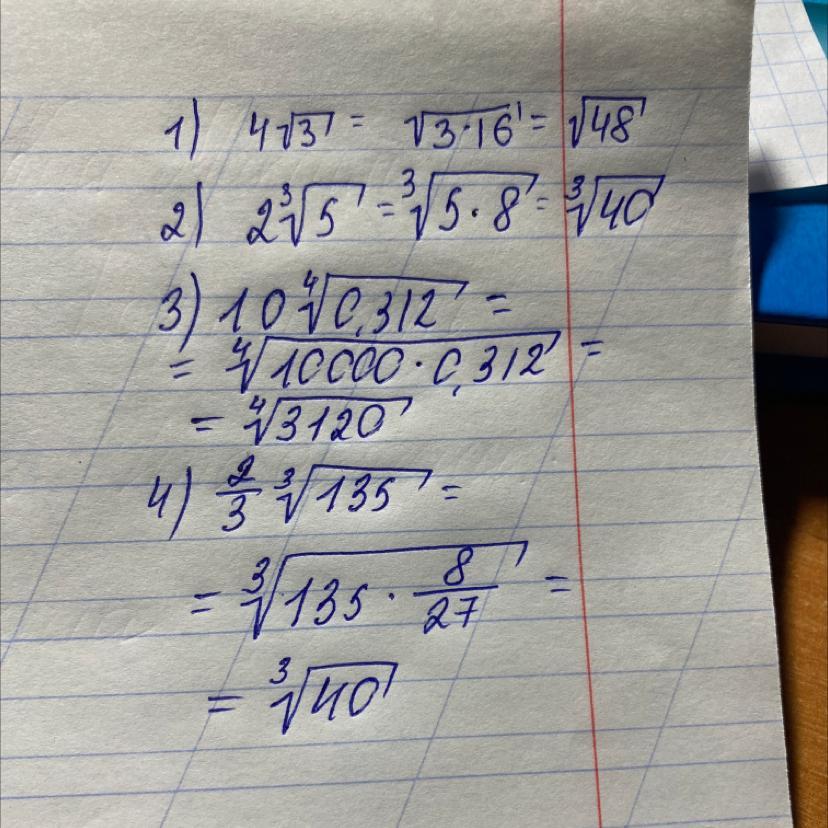 1) 4√3 = √3·16 = √48
2) 2∛5 = ∛5·8 = ∛40
3) 10∜0,312 =
= ∜10000·0,312 =
= ∜3120
4) 2/3 ∛135 =
= ∛135 · 8/27 =
= ∛40